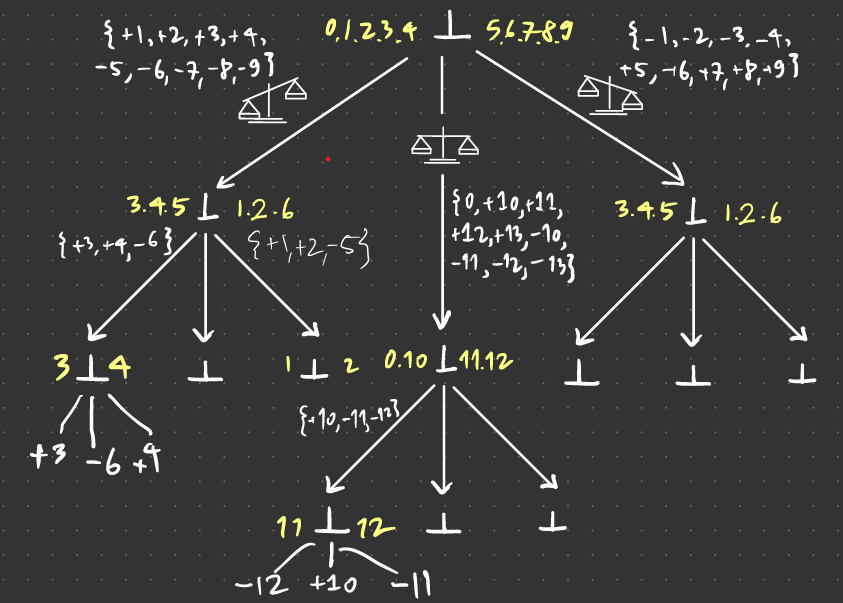 {+1,+2,+3,+4,
-5,-6,-7,-8,-9}
0.1.2.3.4 ⊥ 5.6.7.8.9
{-1,-2,-3,-4,
+5,+6,+7,+8,+9}
3.4.5 ⊥ 1.2.6
{0,+10,+11,
+12,+13,-10,
-11,-12,-13}
3.4.5 ⊥ 1.2.6
{+3,+4,-6}
{+1,+2,-5}
3 ⊥ 4
⊥
1 ⊥ 2
0.10 ⊥ 11.12
⊥
⊥
⊥
+3 -6 +4
{+10,-11,-12}
11 ⊥ 12
⊥
⊥
-12 +10 -11